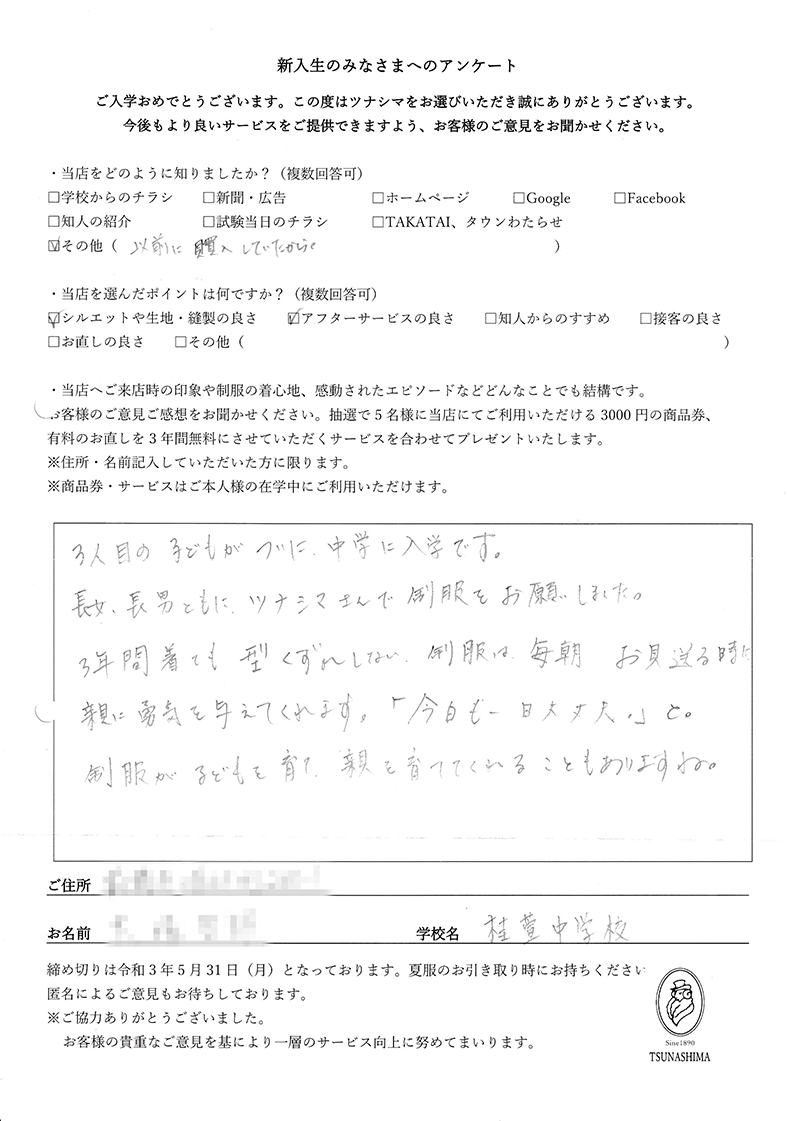 新入生のみなさまへのアンケート
ご入学おめでとうございます。この度はツナシマをお選びいただき誠にありがとうございます。
今後もより良いサービスをご提供できますよう、お客様のご意見をお聞かせください。
・当店をどのように知りましたか？（複数回答可）
□学校からのチラシ □新聞・広告 □ホームページ □Google □Facebook
□知人の紹介 □試験当日のチラシ □TAKATAI、タウンわたらせ
☑その他（ 以前に購入していたから ）
・当店を選んだポイントは何ですか？（複数回答可）
☑シルエットや生地・縫製の良さ ☑アフターサービスの良さ □知人からのすすめ □接客の良さ
□お直しの良さ □その他（ ）
・当店へご来店時の印象や制服の着心地、感動されたエピソードなどどんなことでも結構です。
お客様のご意見ご感想をお聞かせください。抽選で5名様に当店にてご利用いただける3000円の商品券、
有料のお直しを3年間無料にさせていただくサービスを合わせてプレゼントいたします。
※住所・名前記入していただいた方に限ります。
※商品券・サービスはご本人様の在学中にご利用いただけます。
3人目の子どもがついに、中学に入学です。
長女、長男ともに、ツナシマさんで制服をお願いしました。
3年間着ても型くずれしない、制服は、毎朝お見送る時に
親に勇気を与えてくれます。「今日も一日大丈夫。」と。
制服が子どもを育て、親を育ててくれることもありますね。
ご住所
お名前 学校名 桂萱中学校
締め切りは令和3年5月31日（月）となっております。夏服のお引き取り時にお持ちください
匿名によるご意見もお待ちしております。
※ご協力ありがとうございました。
お客様の貴重なご意見を基により一層のサービス向上に努めてまいります。
Sine1890
TSUNASHIMA